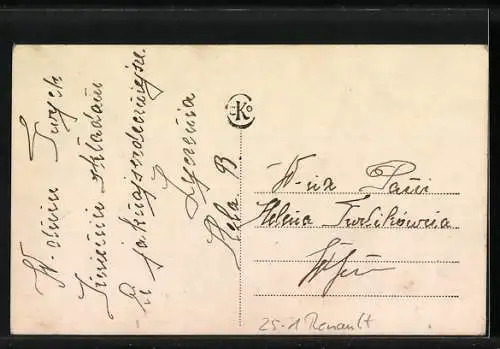 W dniu Twych
Imienin składam
Ci jaknajserdeczniejsze
życzenia
Hela B.
W-na Pani
Helena
25-1 Renault